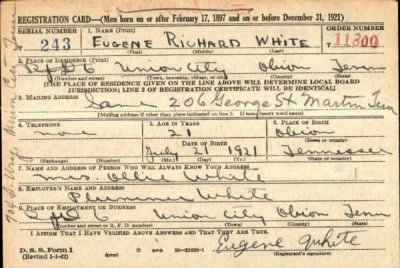 REGISTRATION CARD—(Men born on or after February 17, 1897 and on or before December 31, 1921)
SERIAL NUMBER 1. NAME (Print) ORDER NUMBER
243 EUGENE RICHARD WHITE 11300
(First) (Middle) (Last)
2. PLACE OF RESIDENCE (Print)
Union City Obion Tenn
(Number and street) (Town, township, village, or city) (County) (State)
[THE PLACE OF RESIDENCE GIVEN ON THE LINE ABOVE WILL DETERMINE LOCAL BOARD
JURISDICTION; LINE 2 OF REGISTRATION CERTIFICATE WILL BE IDENTICAL]
3. MAILING ADDRESS
Same 206 George St Martin Tenn
[Mailing address if other than place indicated on line 2. If same insert word same]
4. TELEPHONE 5. AGE IN YEARS 6. PLACE OF BIRTH
none 21 Obion
DATE OF BIRTH (Town or county)
July 21 1921 Tennessee
(Exchange) (Number) (Mo.) (Day) (Yr.) (State or country)
7. NAME AND ADDRESS OF PERSON WHO WILL ALWAYS KNOW YOUR ADDRESS
White
8. EMPLOYER'S NAME AND ADDRESS
White
9. PLACE OF EMPLOYMENT OR BUSINESS
Union City Obion Tenn
(Number and street or R. F. D. number) (Town) (County) (State)
I AFFIRM THAT I HAVE VERIFIED ABOVE ANSWERS AND THAT THEY ARE TRUE.
D. S. S. Form 1
(Revised 1-1-42) (over)
Eugene White
(Registrant's signature)